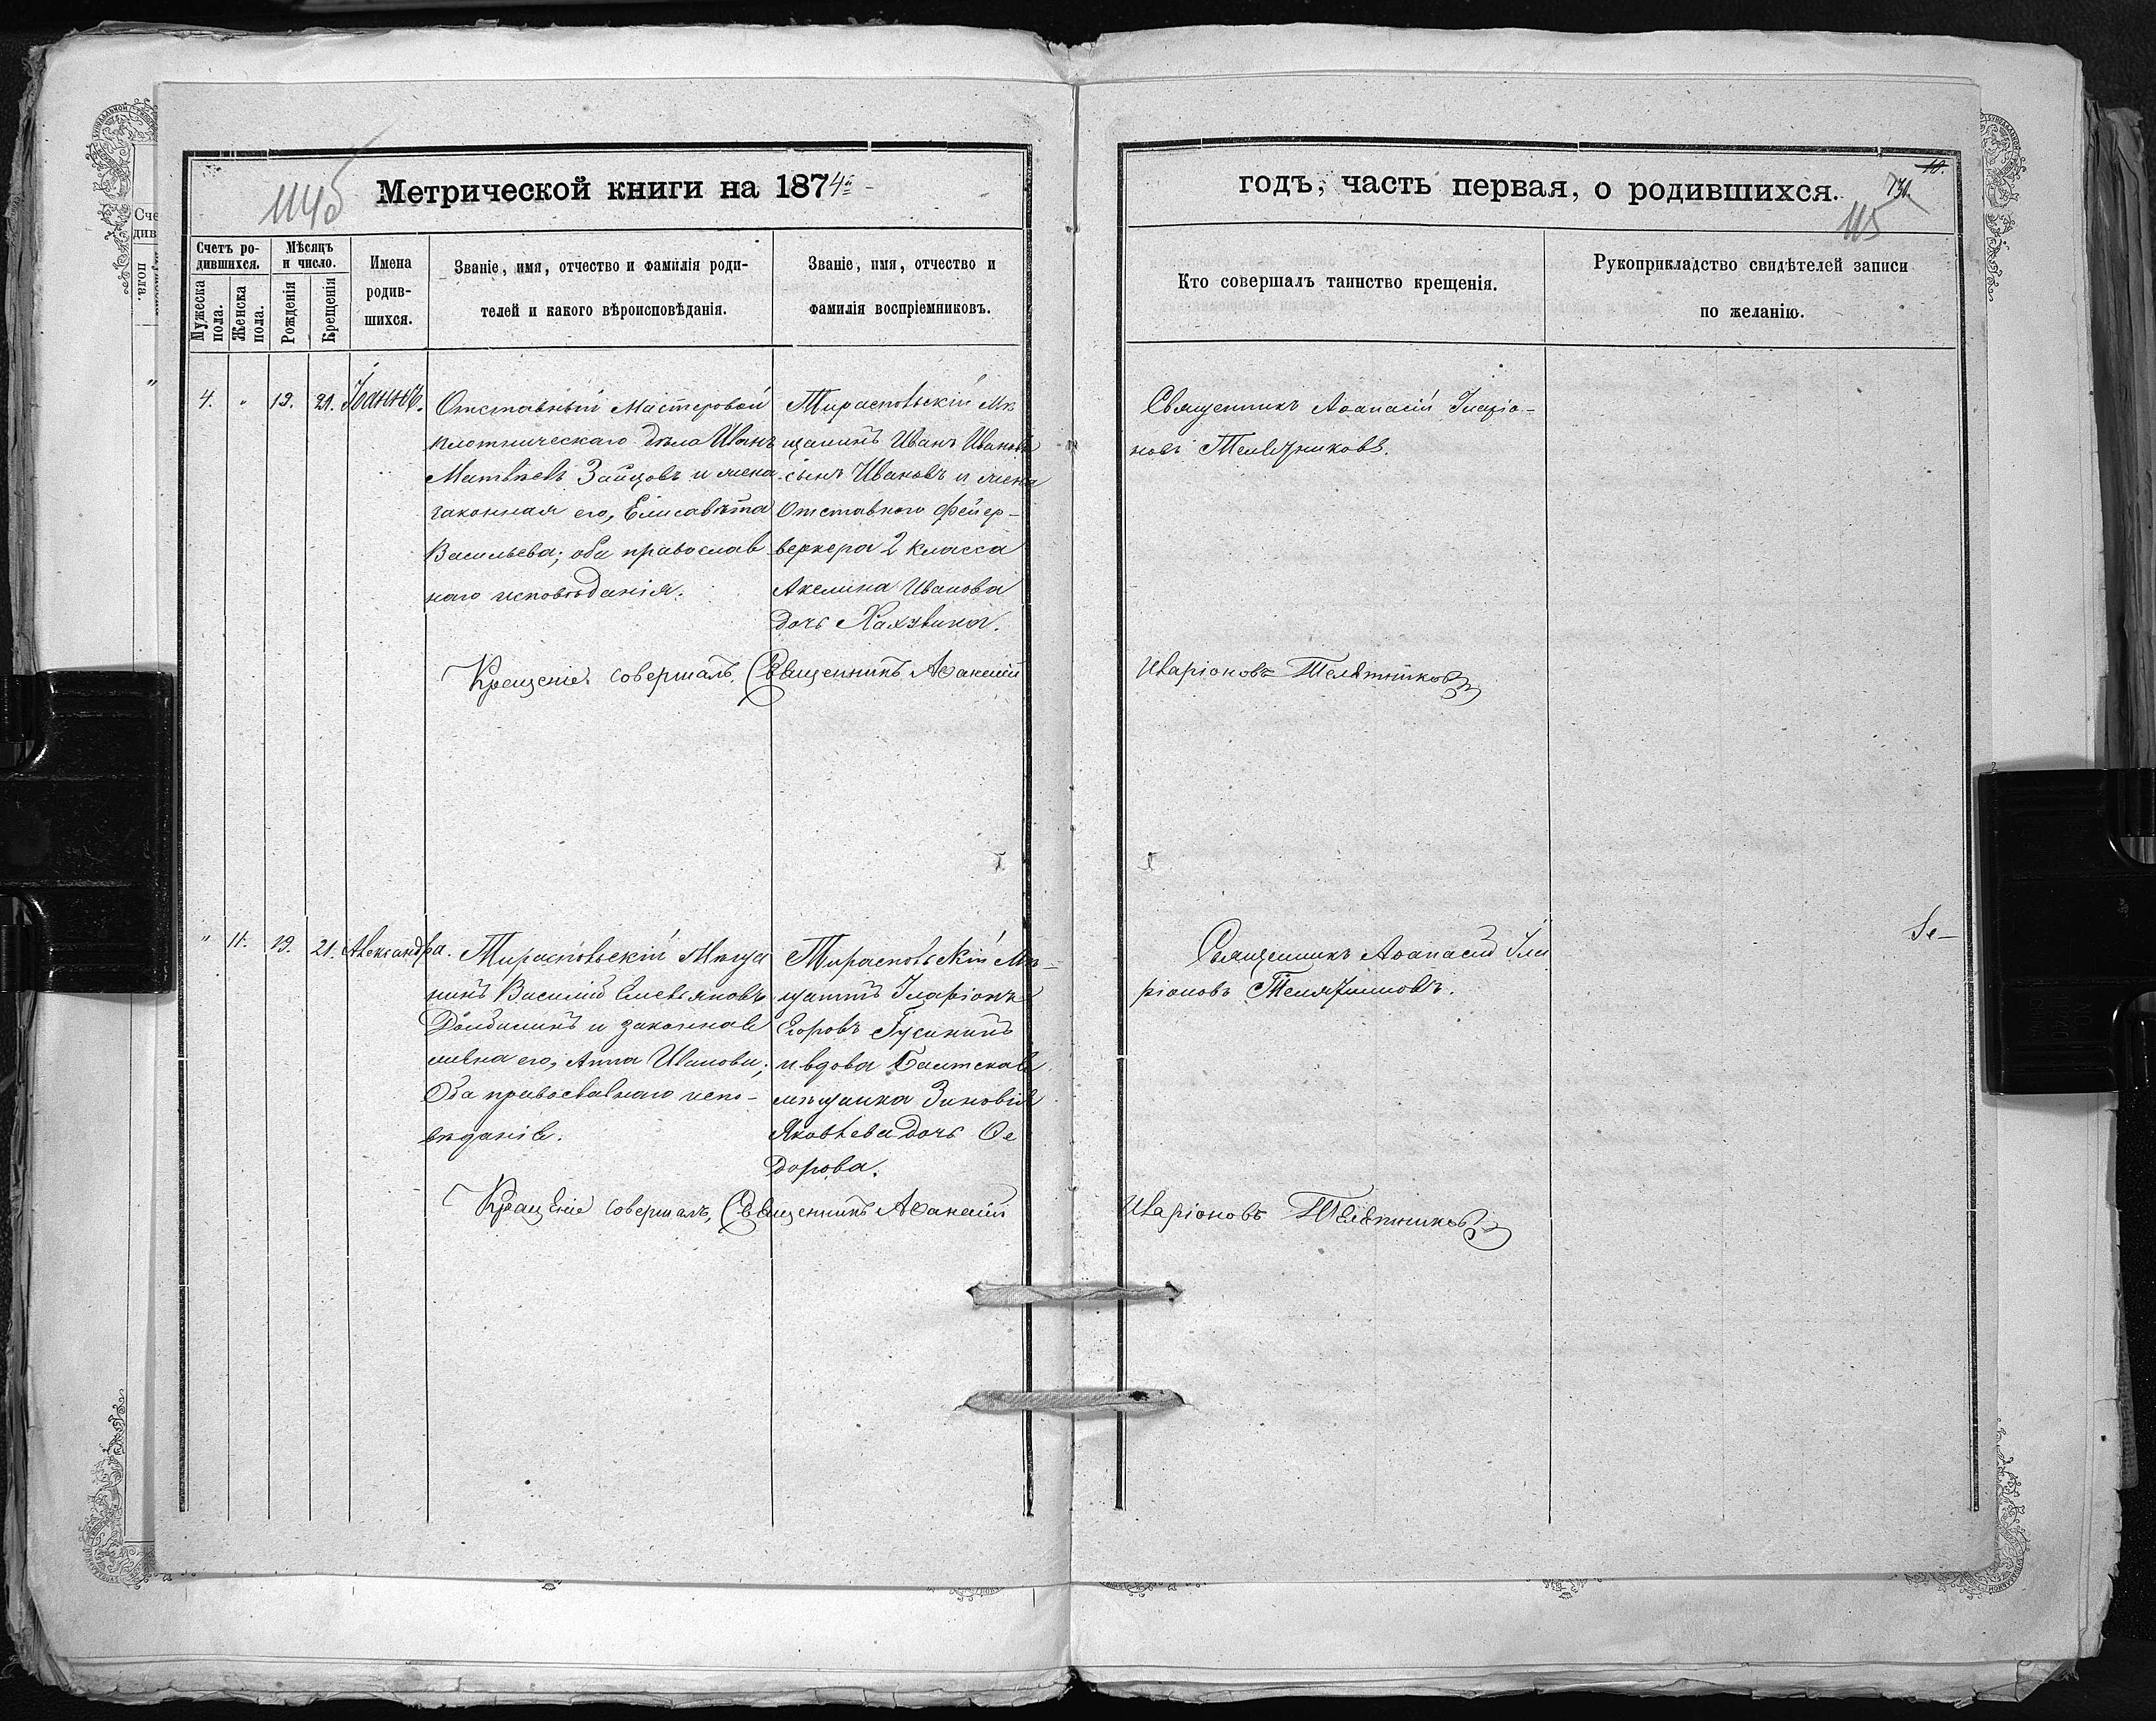 114б
Метрической книги на 1874й
Счетъ родившихся.
Мужеска пола.
Женска пола.
Мѣсяцъ и число.
Рожденія
Крещенія
Имена родившихся.
Званіе, имя, отчество и фамилія родителей и какого вѣроисповѣданія.
Званіе, имя, отчество и фамилія воспріемниковъ.
4. " 19. 21. Іоаннъ.
Отставный Мастеровой
плотническаго дѣла Иванъ
Матвѣевъ Зайцовъ и жена
законная его, Елисавѣта
Васильева; оба православ
наго исповѣданія.
Тираспольскій мѣ
щанинъ Иванъ Ивановъ
сынъ Ивановъ и жена
Отставного фейер-
веркера 2 класса
Акелина Иванова
дочь
Крещеніе совершалъ, Священникъ Аѳанасій
" 4. 19. 21. Александра.
Тираспольскій Мѣща
нинъ Василій Емельяновъ
и законная
жена его, Анна Иванова;
Оба православнаго испо-
вѣданія.
Тираспольскій мѣ-
щанинъ Иларіонъ
Егоровъ Гусининъ
и вдова Балтская
мѣщанка Зиновія
Яковлева дочь Ѳе
дорова.
Крещеніе совершалъ, Священникъ Аѳанасій
годъ, часть первая, о родившихся.
10.
131.
115
Кто совершалъ таинство крещенія.
Рукоприкладство свидѣтелей записи по желанію.
Священникъ Аѳанасій Иларіо-
новъ Телятниковъ.
Иларіоновъ Телятниковъ
Священникъ Аѳанасій Ила
ріоновъ Телятниковъ.
Иларіоновъ Телятниковъ